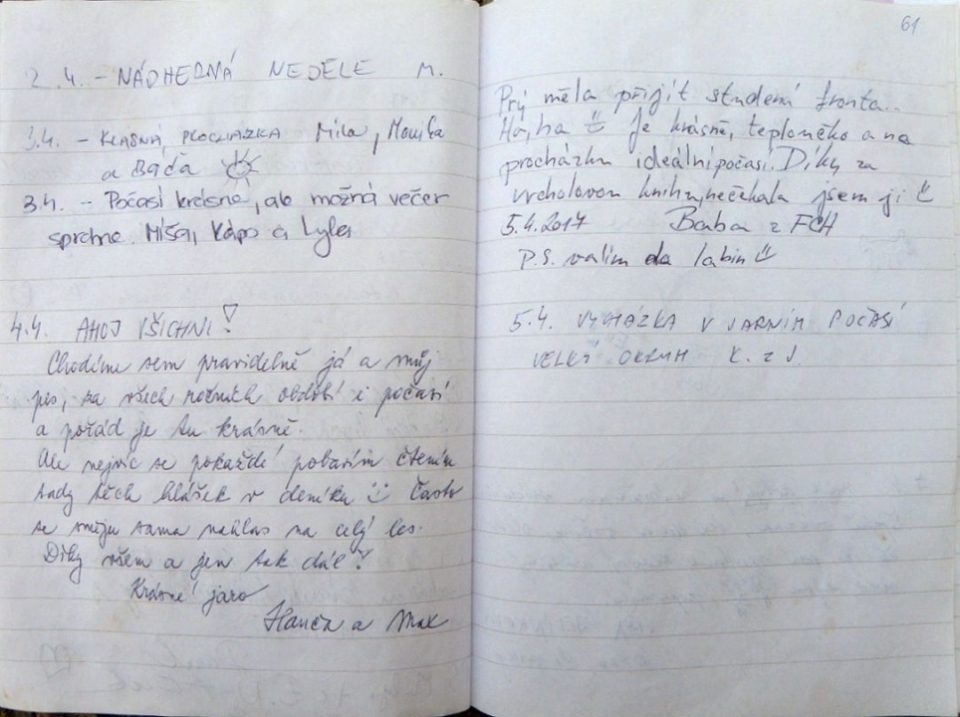 2.4. - NÁDHERNÁ NEDĚLE M.
3.4. - KRÁSNÁ PROCHÁZKA Míla, Monika
a Báďa
3.4. - Počasí krásné, ale možná večer
sprchne. Míša, Kápo a Lyla
4.4. AHOJ VŠICHNI!
Chodíme sem pravidelně já a můj
pes, za všech ročních období i počasí
a pořád je tu krásně.
Ale nejvíc se pokaždé pobavím čtením
tady těch hlášek v deníku Často
se směju sama nahlas na celý les.
Díky všem a jen tak dál!
Krásné jaro
Hanča a Max
61
Prý měla přijít studená fronta..
Ha, ha Je krásně, teploučko a na
procházku ideální počasí. Díky za
vrcholovou knihu, nečekala jsem ji
5.4.2017 Baba z FCH
P.S. valím do labin
5.4. VYCHÁZKA V JARNÍM POČASÍ
VELKÝ OKRUH K. z J.